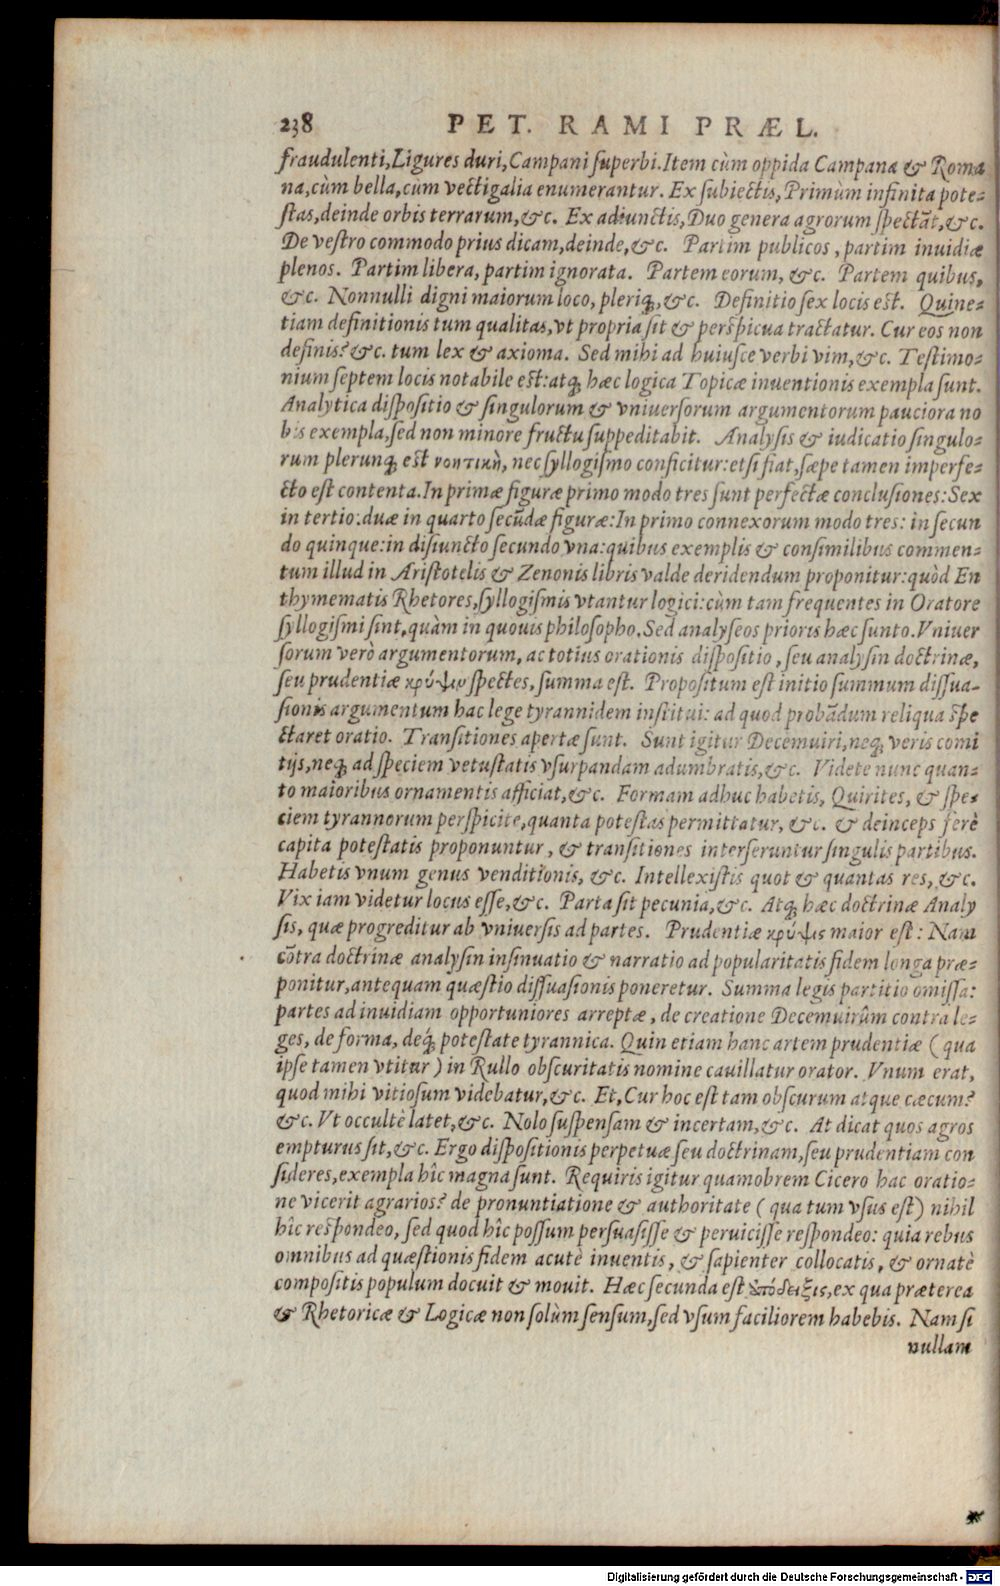 238 PET. RAMI PRÆL.
fraudulenti, Ligures duri, Campani superbi. Item cùm oppida Campanæ & Roma
na, cùm bella, cùm vectigalia enumerantur. Ex subiectis, Primùm infinita pote-
stas, deinde orbis terrarum, &c. Ex adiunctis, Duo genera agrorum spectāt, &c.
De vestro commodo prius dicam, deinde, &c. Partim publicos, partim inuidiæ
plenos. Partim libera, partim ignorata. Partem eorum, &c. Partem quibus,
&c. Nonnulli digni maiorum loco, pleriq;, &c. Definitio sex locis est. Quine-
tiam definitionis tum qualitas, vt propria sit & perspicua tractatur. Cur eos non
definis? &c. tum lex & axioma. Sed mihi ad huiusce verbi vim, &c. Testimo-
nium septem locis notabile est: atq; hæc logica Topicæ inuentionis exempla sunt.
Analytica dispositio & singulorum & vniuersorum argumentorum pauciora no
bis exempla, sed non minore fructu suppeditabit. Analysis & iudicatio singulo-
rum plerunq; est νοητικὴ, nec syllogismo conficitur: etsi fiat, sæpe tamen imperfe-
cto est contenta. In primæ figuræ primo modo tres sunt perfectæ conclusiones: Sex
in tertio: duæ in quarto secūdæ figuræ: In primo connexorum modo tres: in secun
do quinque: in disiuncto secundo vna: quibus exemplis & consimilibus commen-
tum illud in Aristotelis & Zenonis libris valde deridendum proponitur: quòd En
thymematis Rhetores, syllogismis vtantur logici: cùm tam frequentes in Oratore
syllogismi sint, quàm in quouis philosopho. Sed analyseos prioris hæc sunto. Vniuer
sorum verò argumentorum, ac totius orationis dispositio, seu analysin doctrinæ,
seu prudentiæ κρύψιν spectes, summa est. Propositum est initio summum dissua-
sionis argumentum hac lege tyrannidem institui: ad quod probādum reliqua spe
ctaret oratio. Transitiones apertæ sunt. Sunt igitur Decemuiri, neq; veris comi
tijs, neq; ad speciem vetustatis vsurpandam adumbratis, &c. Videte nunc quan-
to maioribus ornamentis afficiat, &c. Formam adhuc habetis, Quirites, & spe-
ciem tyrannorum perspicite, quanta potestas permittatur, &c. & deinceps ferè
capita potestatis proponuntur, & transitiones interseruntur singulis partibus.
Habetis vnum genus venditionis, &c. Intellexistis quot & quantas res, &c.
Vix iam videtur locus esse, &c. Parta sit pecunia, &c. Atq; hæc doctrinæ Analy
sis, quæ progreditur ab vniuersis ad partes. Prudentiæ κρύψις maior est: Nam
cōtra doctrinæ analysin insinuatio & narratio ad popularitatis fidem longa præ-
ponitur, antequam quæstio dissuasionis poneretur. Summa legis partitio omissa:
partes ad inuidiam opportuniores arreptæ, de creatione Decemuirûm contra le-
ges, de forma, deq́; potestate tyrannica. Quin etiam hanc artem prudentiæ (qua
ipse tamen vtitur) in Rullo obscuritatis nomine cauillatur orator. Vnum erat,
quod mihi vitiosum videbatur, &c. Et, Cur hoc est tam obscurum atque cæcum?
&c. Vt occultè latet, &c. Nolo suspensam & incertam, &c. At dicat quos agros
empturus sit, &c. Ergo dispositionis perpetuæ seu doctrinam, seu prudentiam con
sideres, exempla hîc magna sunt. Requiris igitur quamobrem Cicero hac oratio-
ne vicerit agrarios? de pronuntiatione & authoritate (qua tum vsus est) nihil
hîc respondeo, sed quod hîc possum persuasisse & peruicisse respondeo: quia rebus
omnibus ad quæstionis fidem acutè inuentis, & sapienter collocatis, & ornatè
compositis populum docuit & mouit. Hæc secunda est ὑπόδειξις, ex qua præterea
& Rhetoricæ & Logicæ non solùm sensum, sed vsum faciliorem habebis. Nam si
nullam
Digitalisierung gefördert durch die Deutsche Forschungsgemeinschaft - DFG